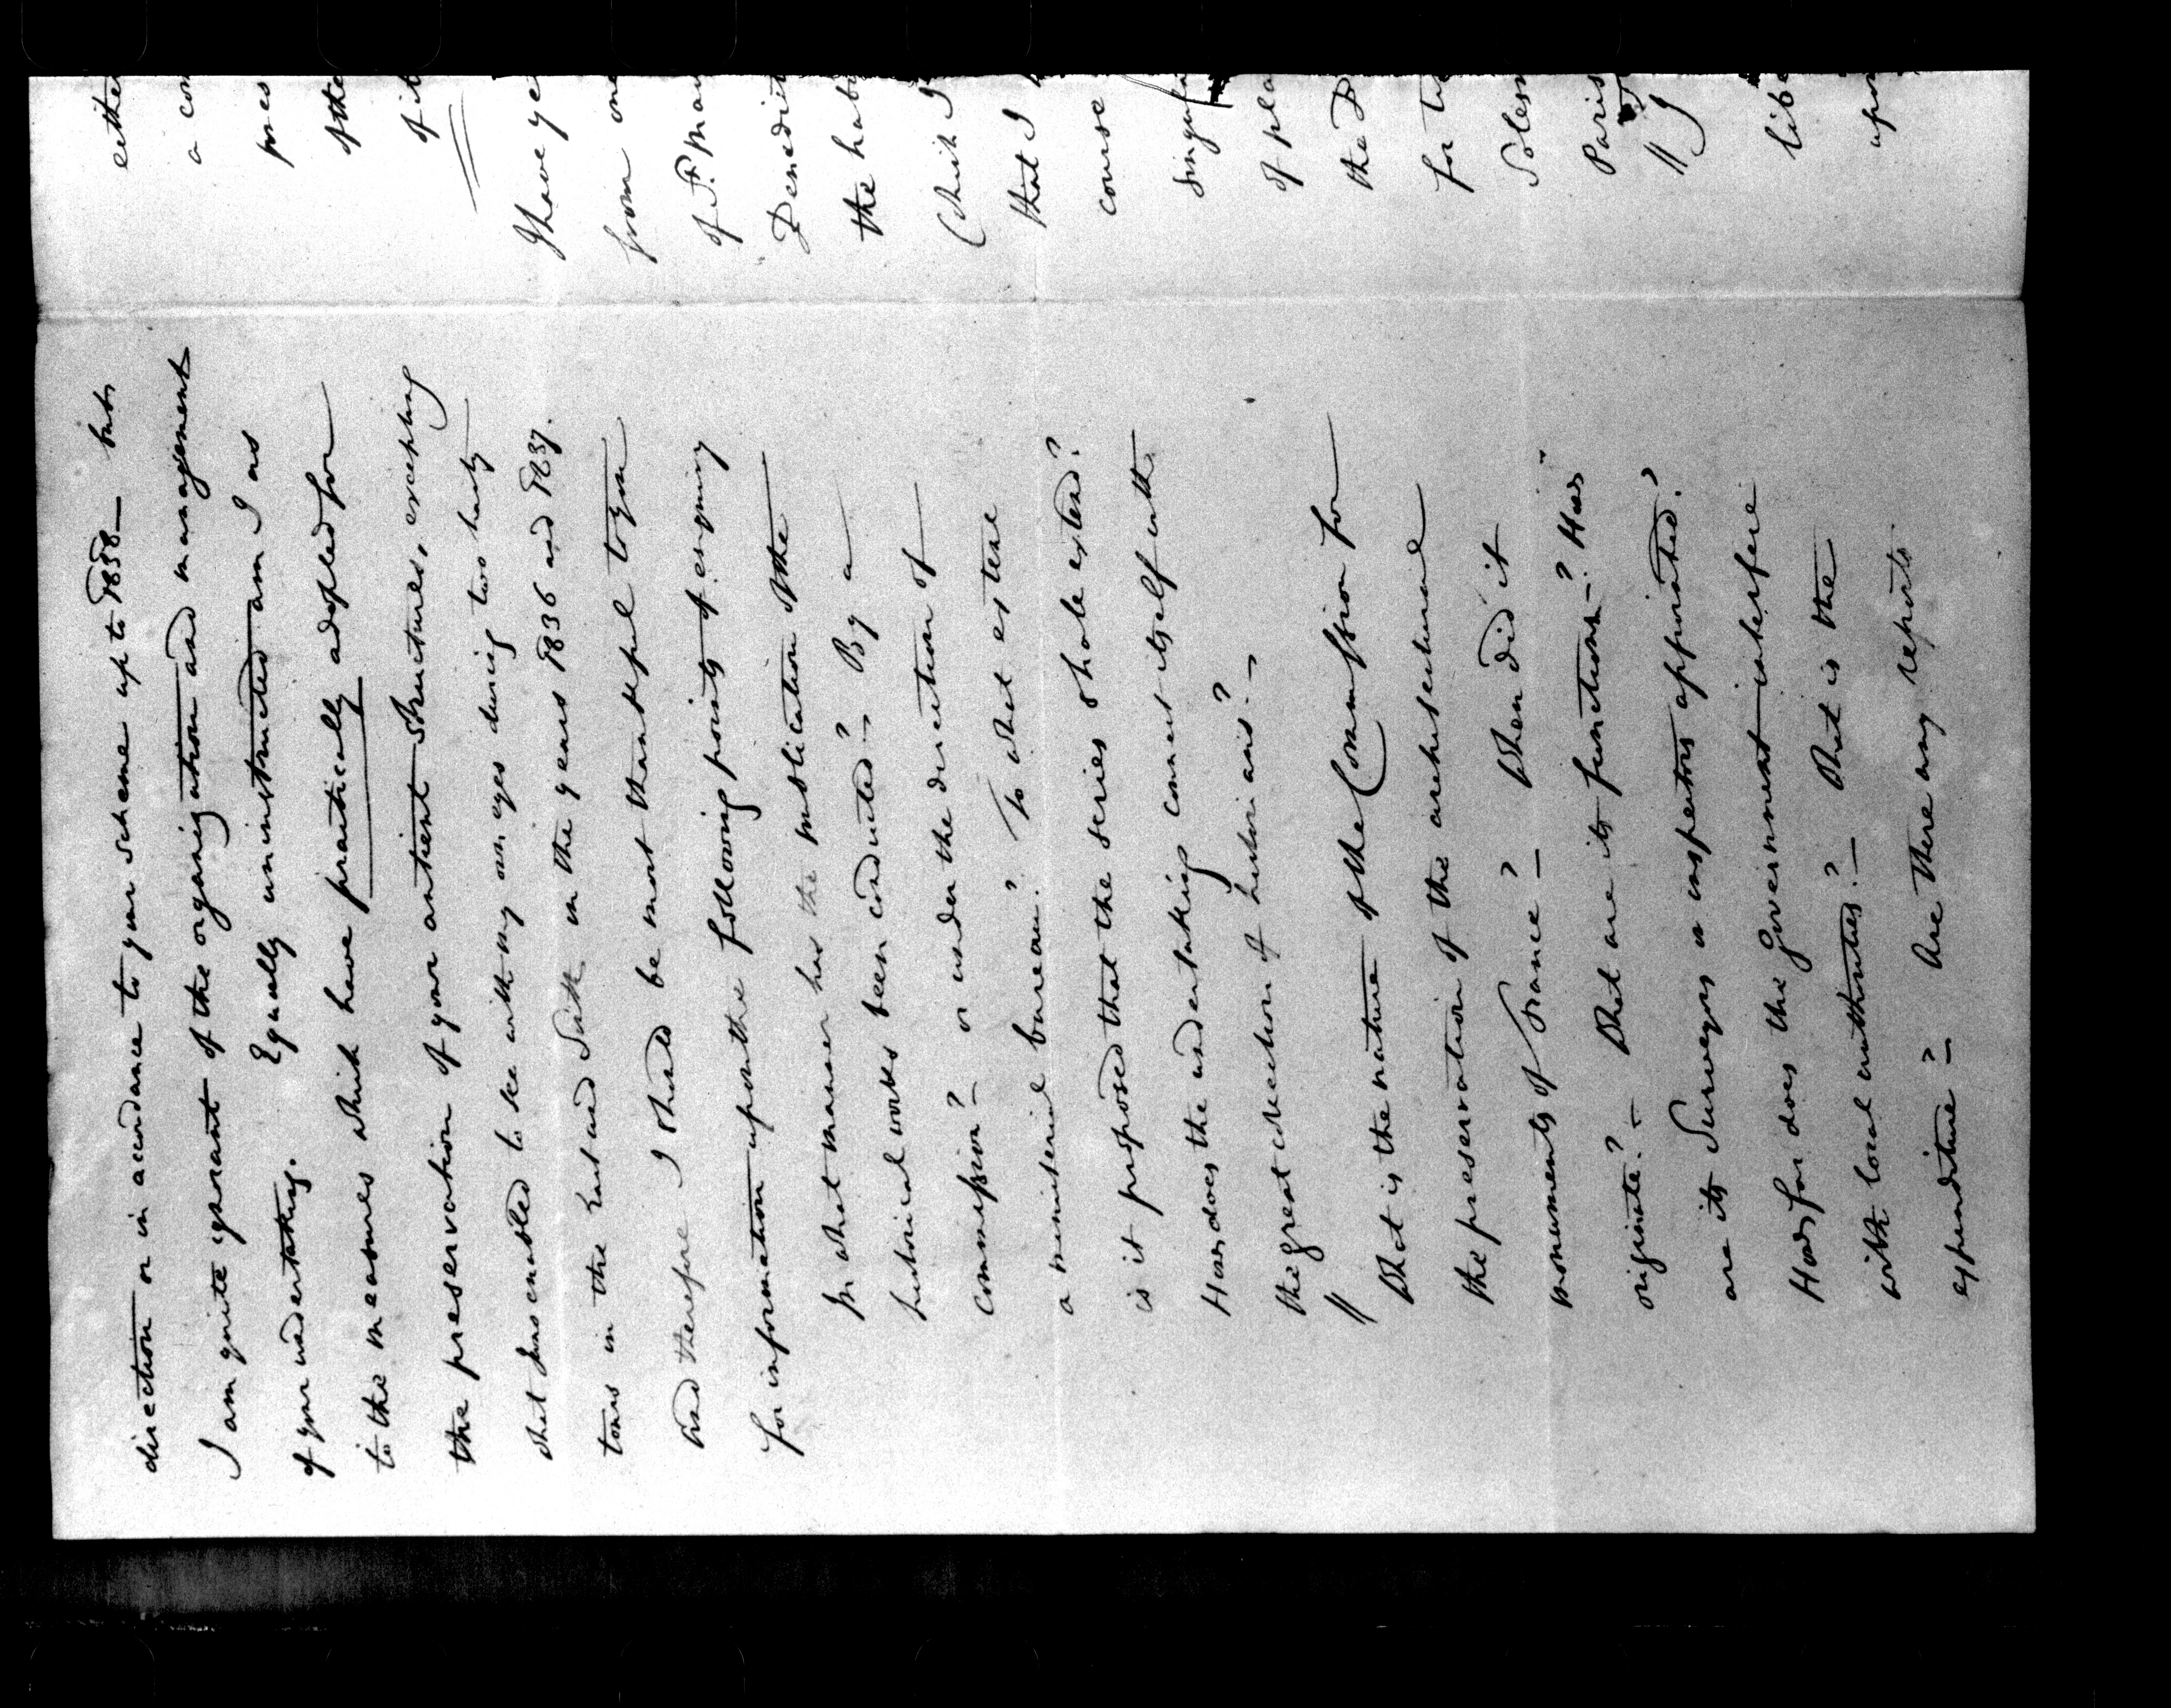 direction or in accordance to your scheme up to 1838 — but
I am quite ignorant of the organization and management
of your undertaking. Equally uninstructed am I as
to the measures which have practically adopted for
the preservation of your antient structures, excepting
what I was enabled to see with my own eyes during two hasty
tours in the East and South in the years 1836 and 1837.
And therefore I should be most thankful to you
for information upon the following points of enquiry
In what manner has the publication of the
historical works been conducted? — By a
commission? — or under the direction of
a ministerial bureau? To what extent
is it proposed that the series should extend?
How does the undertaking connect itself with
the great collection of historians? —
// What is the nature of the Commission for
the preservation of the architectural
monuments of France? — When did it
originate? — What are its functions? How
are its Surveyors or inspectors appointed?
How far does the Government interfere
with local authorities? — What is the
expenditure? — Are there any reports
either
a con
pres
of the
of it
I have ye
from one
of Fr. Mau
Benedict
the hab
(which I
that I
course
singul
of pla
the B
for the
Solesm
Paris
// I
libe
upon